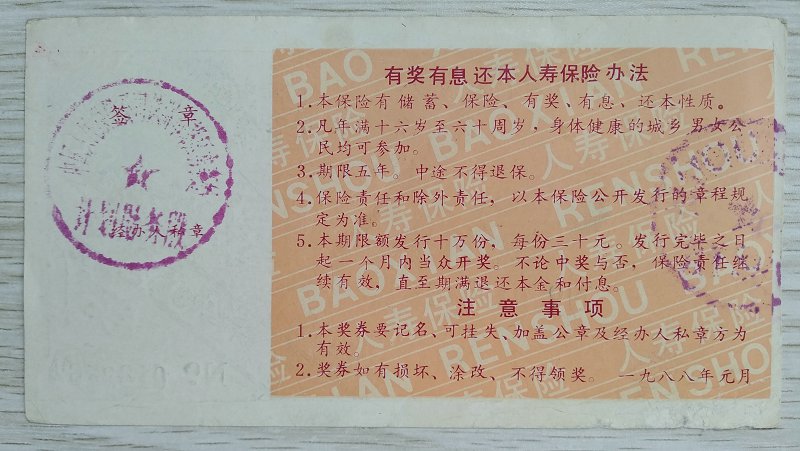 签 章
经办人私章
有奖有息还本人寿保险办法
1.本保险有储蓄、保险、有奖、有息、还本性质。
2.凡年满十六岁至六十周岁，身体健康的城乡男女公
民均可参加。
3.期限五年。中途不得退保。
4.保险责任和除外责任，以本保险公开发行的章程规
定为准。
5.本期限额发行十万份，每份三十元。发行完毕之日
起一个月内当众开奖。不论中奖与否，保险责任继
续有效，直至期满退还本金和付息。
注意事项
1.本奖券要记名、可挂失、加盖公章及经办人私章方为
有效。
2.奖券如有损坏、涂改、不得领奖。 一九八八年元月